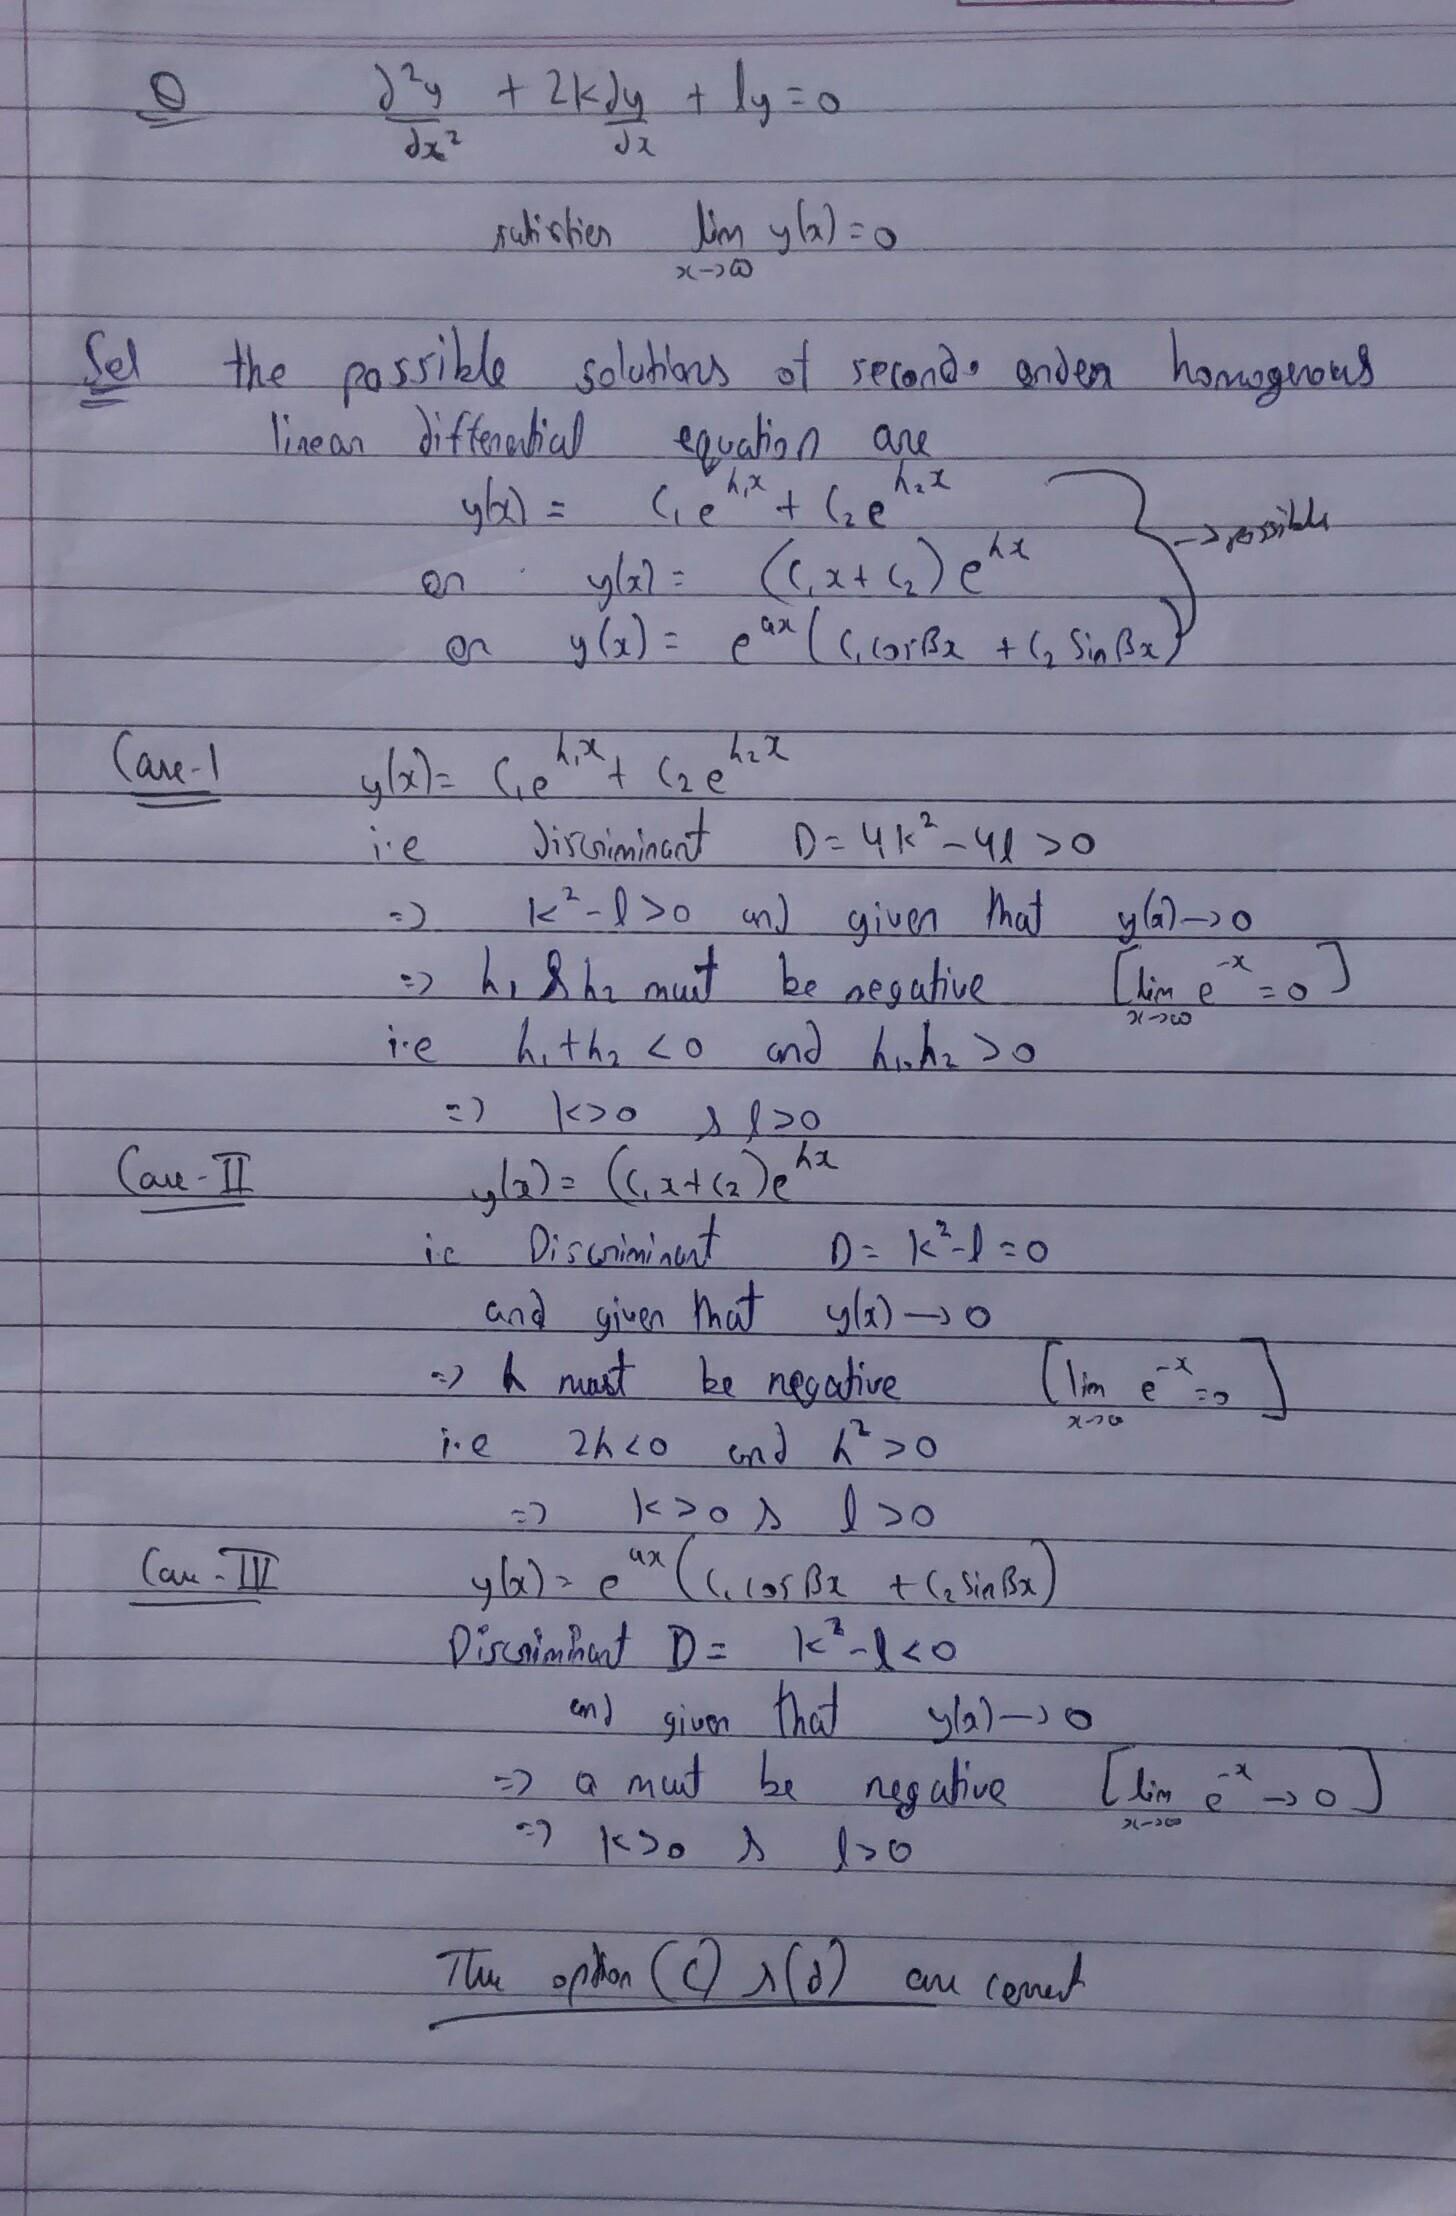 Q d²y/dx² + 2k dy/dx + ly = 0
satisfies lim x→∞ y(x) = 0
Sol the possible solutions of second order homogenous
linear differential equation are
y(x) = C₁e^{h₁x} + C₂e^{h₂x}
or y(x) = (C₁x + C₂)e^{hx} → possible
or y(x) = e^{ax}(C₁cosβx + C₂Sinβx)
Case-I y(x) = C₁e^{h₁x} + C₂e^{h₂x}
i.e Discriminant D = 4k² - 4l > 0
=> k² - l > 0 and given that y(x) → 0
=> h₁ & h₂ must be negative [lim x→∞ e^{-x} = 0]
i.e h₁ + h₂ < 0 and h₁.h₂ > 0
=> k > 0 & l > 0
Case-II y(x) = (C₁x + C₂)e^{hx}
i.e Discriminant D = k² - l = 0
and given that y(x) → 0
=> h must be negative [lim x→∞ e^{-x} = 0]
i.e 2h < 0 and h² > 0
=> k > 0 & l > 0
Case-III y(x) = e^{ax}(C₁cosβx + C₂Sinβx)
Discriminant D = k² - l < 0
and given that y(x) → 0
=> a must be negative [lim x→∞ e^{-x} → 0]
=> k > 0 & l > 0
The option (C) & (d) are correct